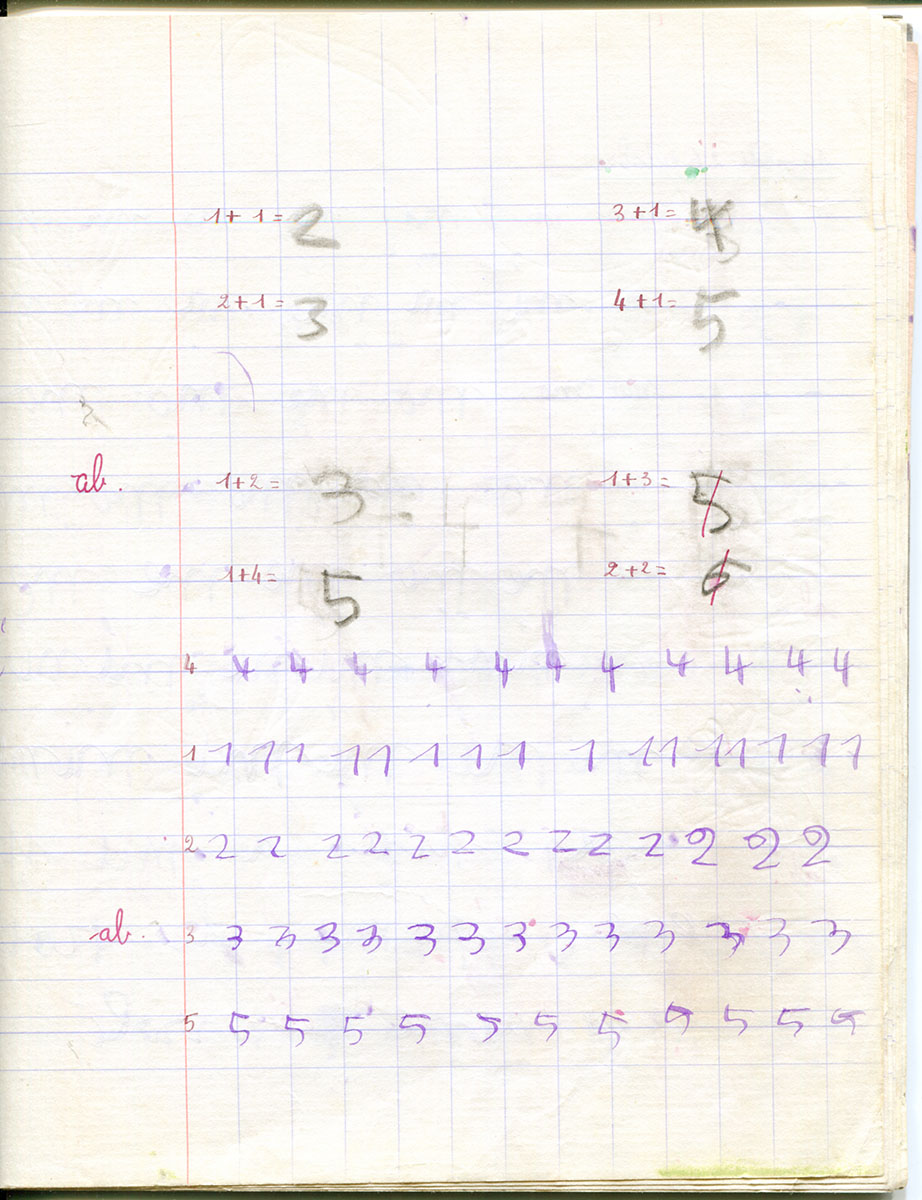 1+1= 2 3+1= 4
2+1= 3 4+1= 5
ab. 1+2= 3 1+3= 5
1+4= 5 2+2= 6
4 4 4 4 4 4 4 4 4 4 4 4
1 1 1 1 1 1 1 1 1 1 1 1 1 1 1 1 1
2 2 2 2 2 2 2 2 2 2 2 2 2 2
ab. 3 3 3 3 3 3 3 3 3 3 3 3 3 3
5 5 5 5 5 5 5 5 5 5 5 5